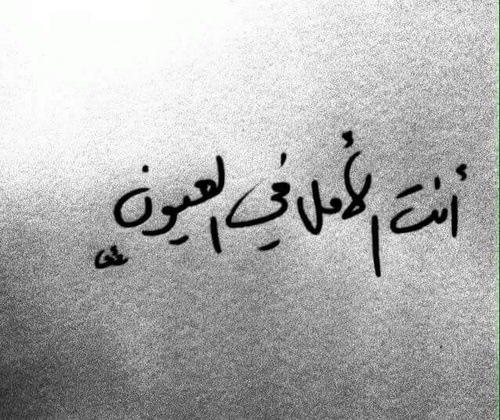 أنت الأمل في العيون